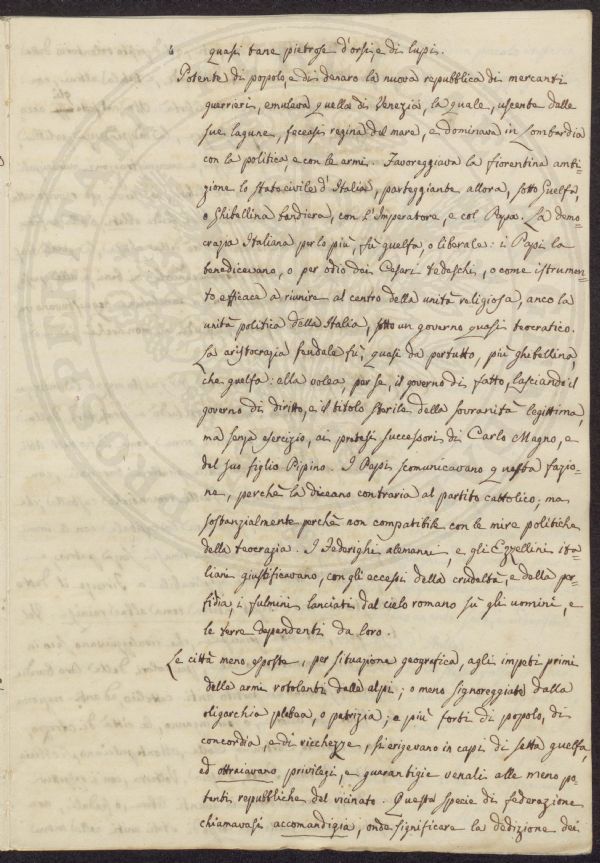 6 quasi tane pietrose d'orsi, e di lupi.
Potente di popolo, e di denaro la nuova repubblica di mercanti
guerrieri, emulava quella di Venezia, la quale, uscente dalle
sue lagune, feceasi regina del mare, e dominava in Lombardia
con la politica, e con le armi. Favoreggiava la fiorentina ambi-
zione lo stato civile d'Italia, parteggiante allora, sotto Guelfa,
o Ghibellina bandiera, con l'Imperatore, e col Papa. La demo-
crazia Italiana per lo più, fù guelfa, o liberale: i Papi la
benedicevano, o per odio dei Cesari tedeschi, o come istrumen-
to efficace a riunire al centro della unità religiosa, anco la
unità politica della Italia, sotto un governo quasi teocratico.
La aristocrazia feudale fù, quasi da pertutto, più ghibellina,
che guelfa: ella volea, per se, il governo di fatto, lasciando il
governo di diritto, e il titolo sterile della sovranità legittima,
ma senza esercizio, ai pretesi successori di Carlo Magno, e
del suo figlio Pipino. I Papi scomunicavano questa fazio-
ne, perchè la diceano contraria al partito cattolico; ma
sostanzialmente perchè non compatibile con le mire politiche
della teocrazia. I Federighi alemanni, e gli Ezzellini ita-
liani giustificavano, con gli eccessi della crudeltà, e della per-
fidia, i fulmini lanciati dal cielo romano sù gli uomini, e
le terre dependenti da loro.
Le città meno esposte, per situazione geografica, agli impeti primi
delle armi rotolanti dalle alpi; o meno signoreggiate dalla
oligarchia plebea, o patrizia; e più forti di popolo, di
concordia, e di ricchezze, si erigevano in capi di setta guelfa,
ed ottraiavano, privilegi, e guarantigie venali alle meno po-
tenti repubbliche del vicinato. Questa specie di federazione
chiamavasi accomandigia, onde significare la dedizione dei